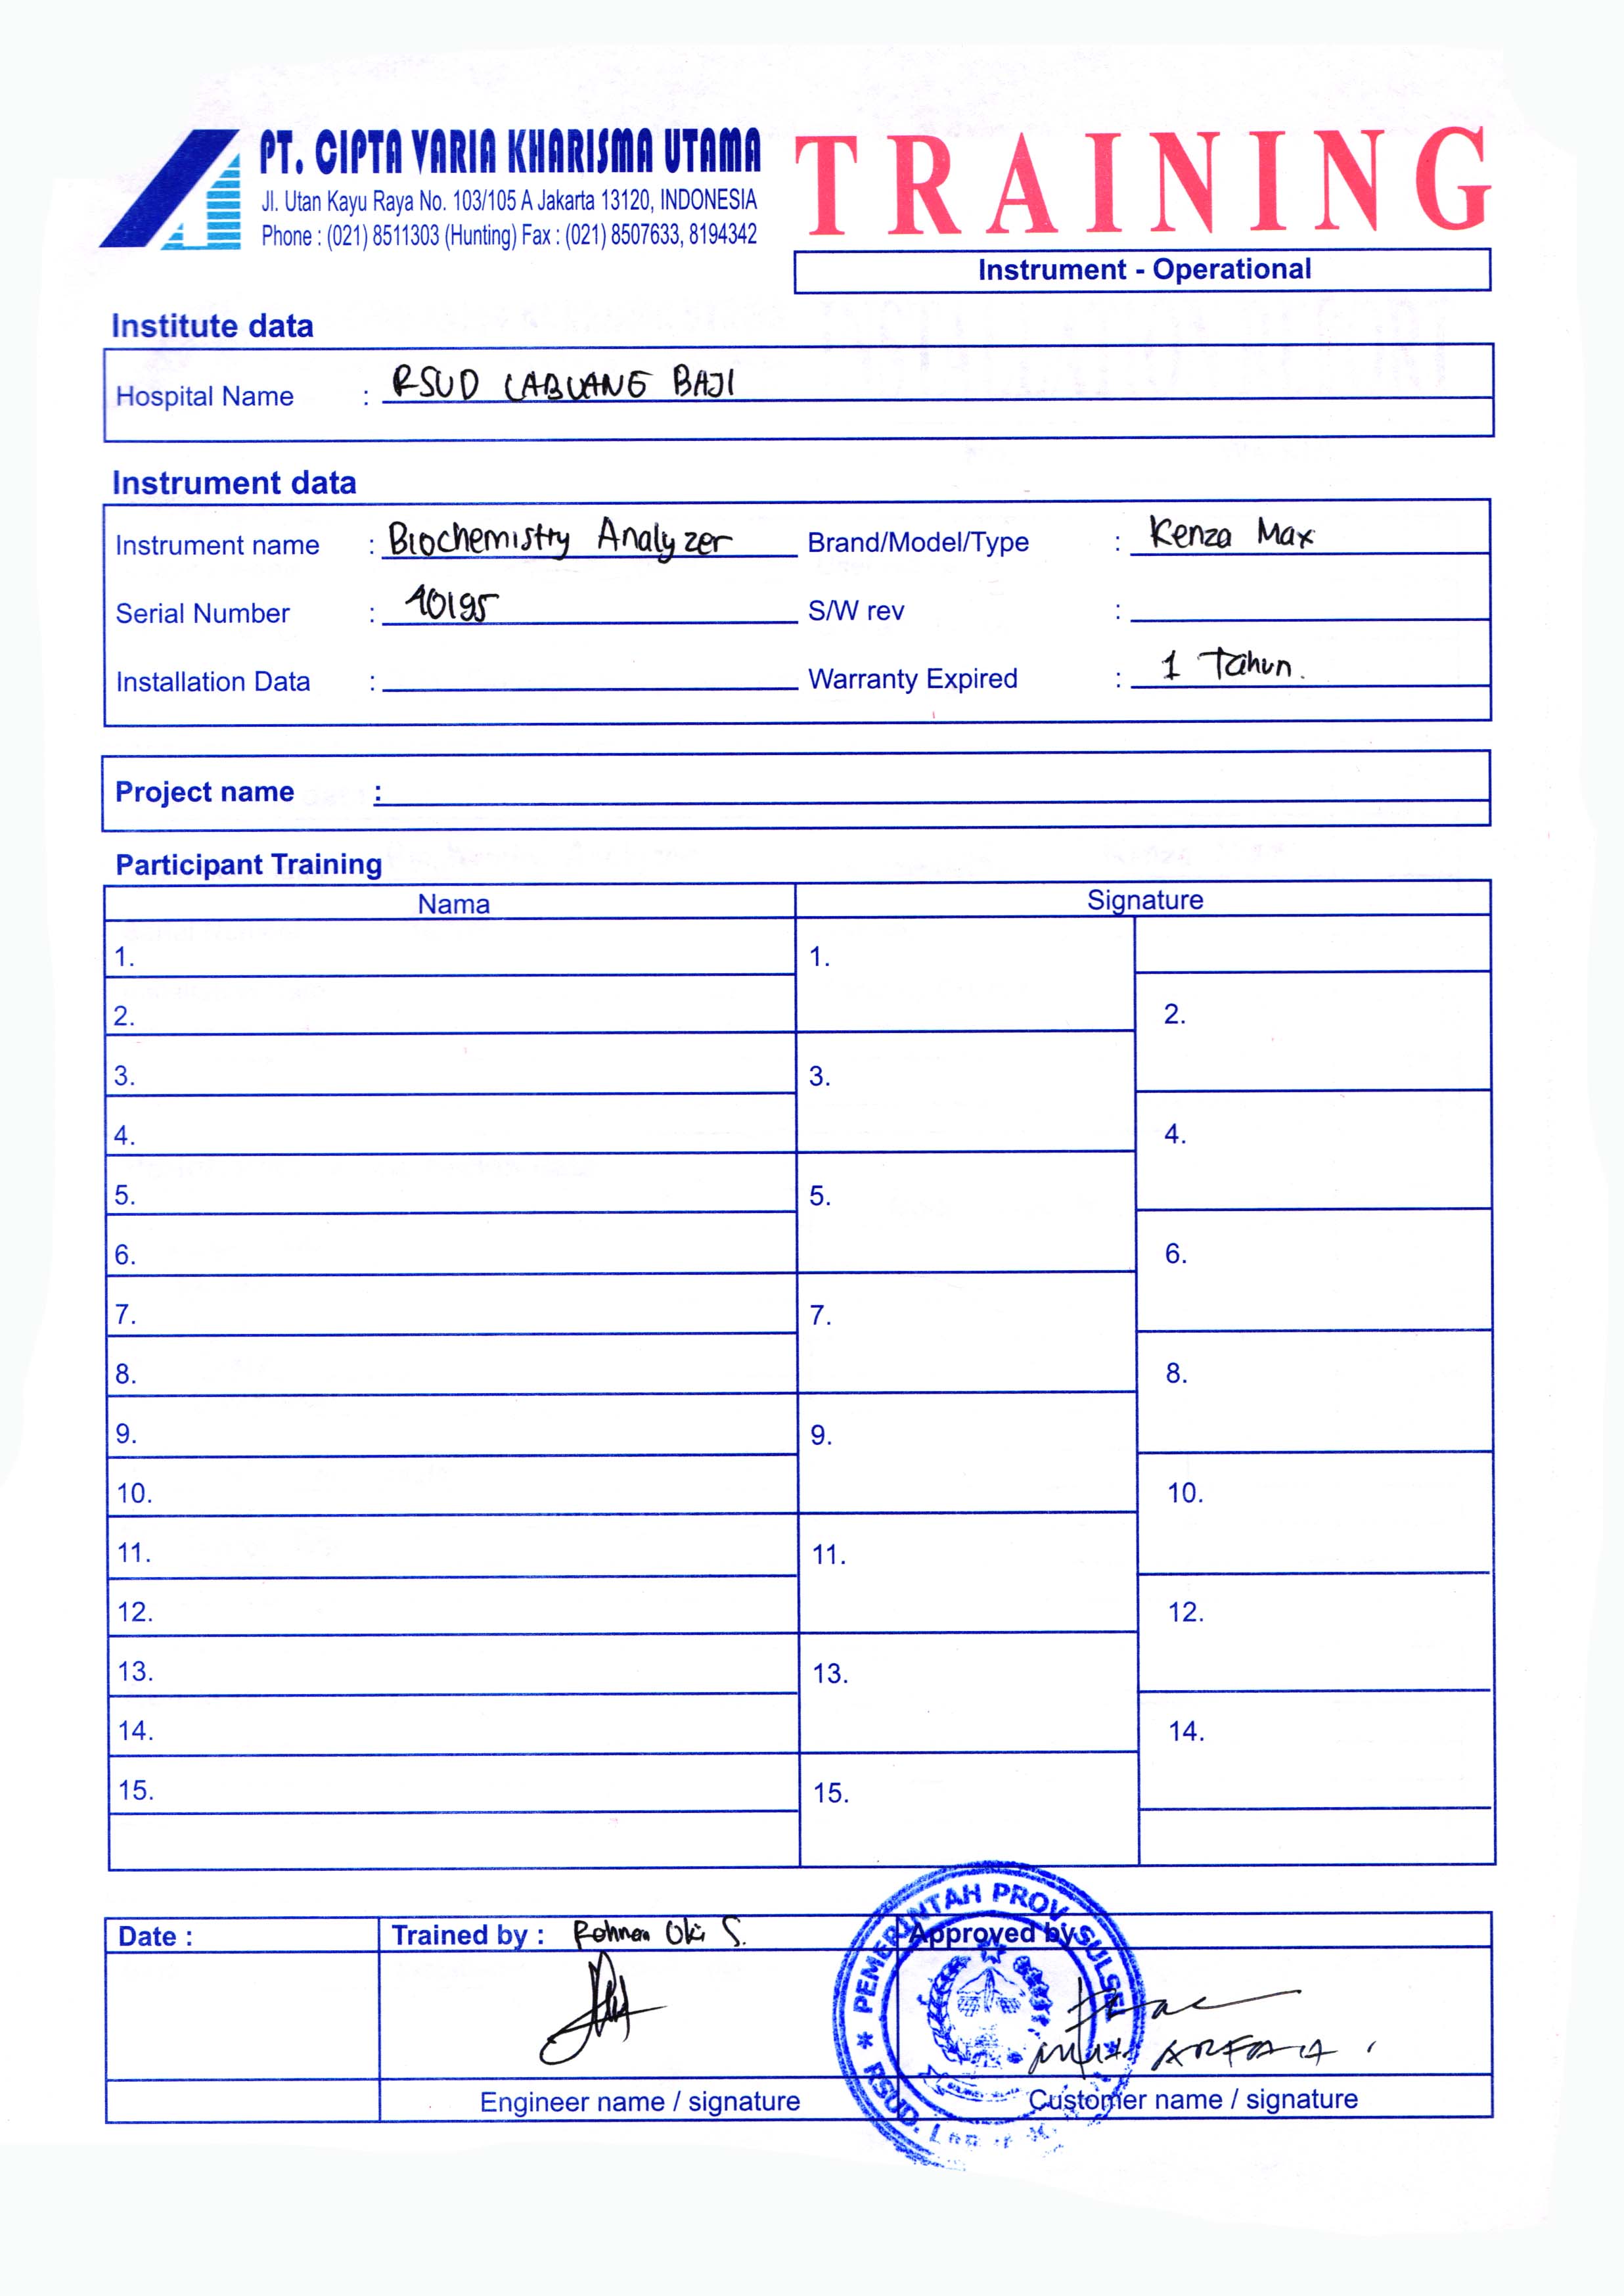 PT. CIPTA VARIA KHARISMA UTAMA
Jl. Utan Kayu Raya No. 103/105 A Jakarta 13120, INDONESIA
Phone : (021) 8511303 (Hunting) Fax : (021) 8507633, 8194342
TRAINING
Instrument - Operational
Institute data
Hospital Name : RSUD LABUANG BAJI
Instrument data
Instrument name : Biochemistry Analyzer Brand/Model/Type : Kenza Max
Serial Number : 10195 S/W rev :
Installation Data : Warranty Expired : 1 Tahun.
Project name :
Participant Training
Nama Signature
1. 1.
2. 2.
3. 3.
4. 4.
5. 5.
6. 6.
7. 7.
8. 8.
9. 9.
10. 10.
11. 11.
12. 12.
13. 13.
14. 14.
15. 15.
Date : Trained by : Oki S. Approved by
PEMERINTAH PROV. SULSEL
RSUD.
Engineer name / signature Customer name / signature